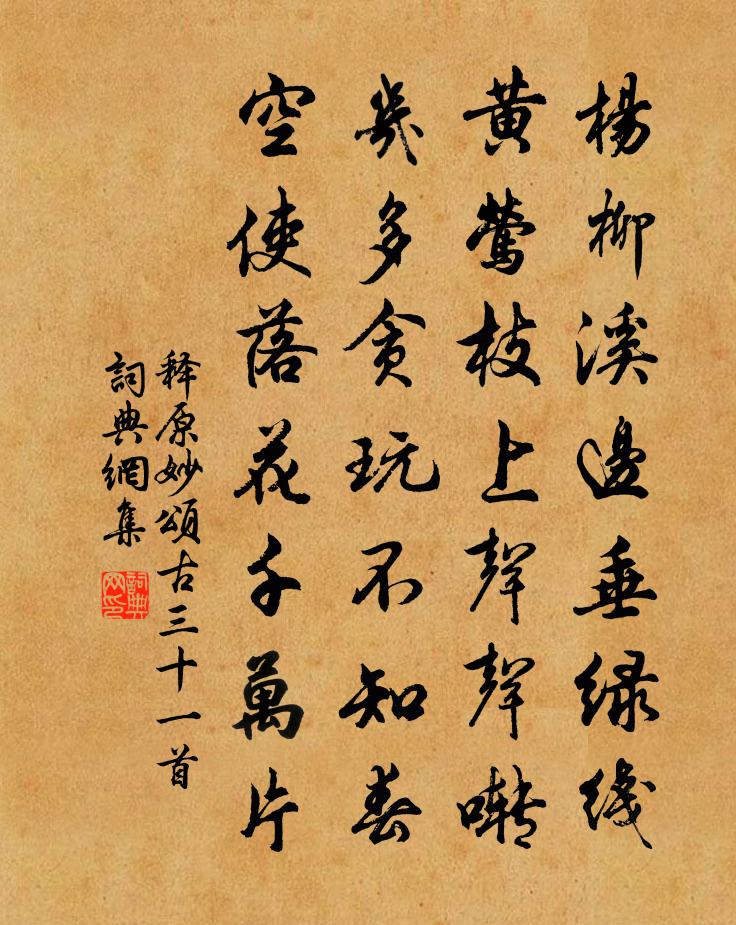 楊柳溪邊垂綠綫
黃鶯枝上聲聲囀
幾多貪玩不知春
空使落花千萬片
释原妙頌古三十一首
詞典網集
詞典網印